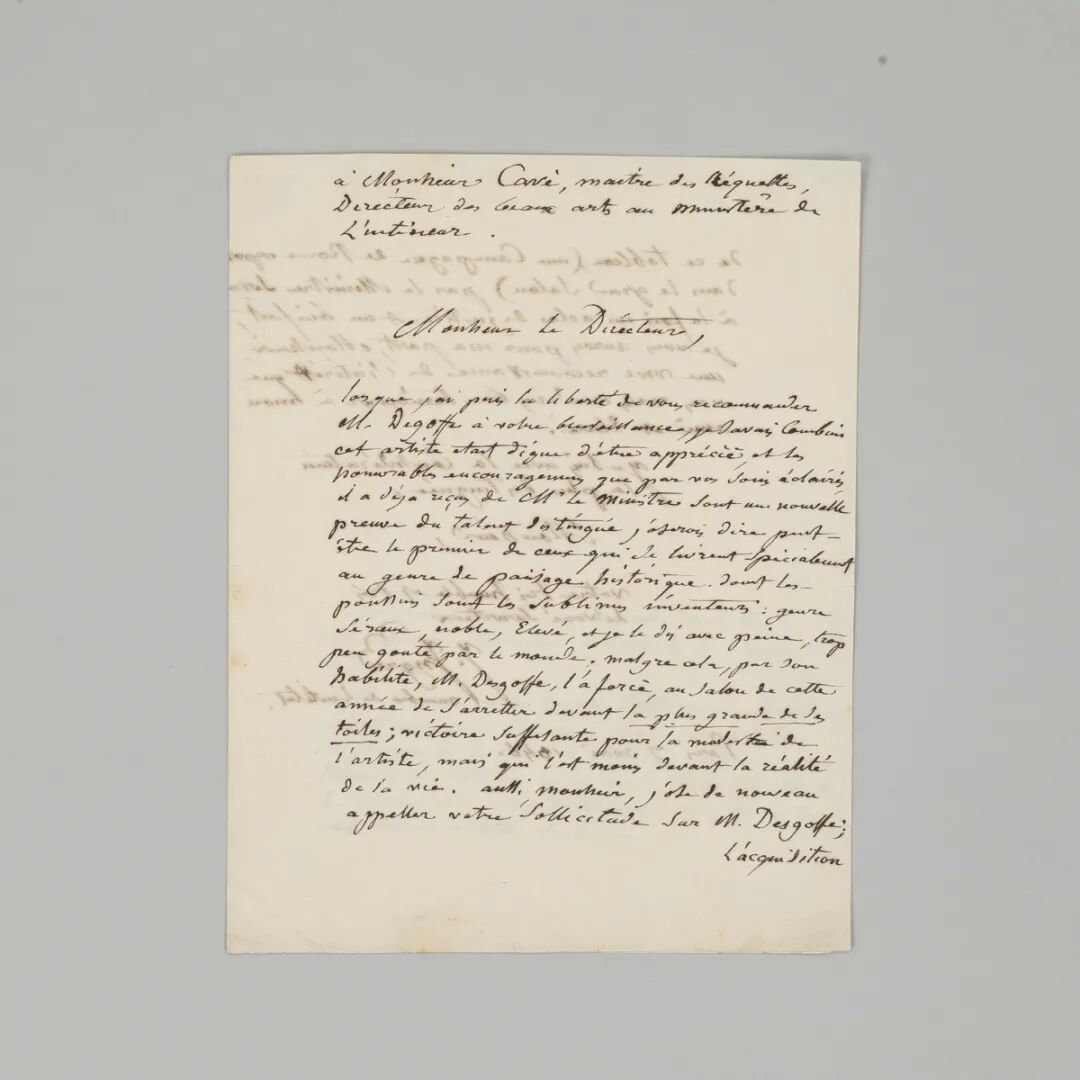 à Monsieur Cavé, maitre des Réquettes,
Dirécteur des beaux arts au ministère de
L'intérieur.
Monsieur le Dirécteur,
lorsque j'ai pris la liberté de vous recommander
M. Degoffe à votre bienveillance, je savais Combien
cet artiste etait digne d'être apprécié, et les
honorables encouragemens que par vos soins éclairés
il a déja reçus de M le ministre sont une nouvelle
preuve du talent distingué, j'oserois dire peut-
être le premier de ceux qui se livrent spécialement
au genre de païsage historique. dont les
poussins sont les sublimes inventeurs : genre
sérieux, noble, Elevé, et je le dis avec peine, trop
peu gouté par le monde. malgre cela, par son
habilité, M. Desgoffe, l'a forcé, au salon de cette
année de s'arretter devant la plus grande de ses
toiles ; victoire suffisante pour la modestie de
l'artiste, mais qui l'est moins devant la réalité
de la vie. aussi monsieur, j'ose de nouveau
appeller votre sollicitude sur M. Desgoffe ;
L'acquisition